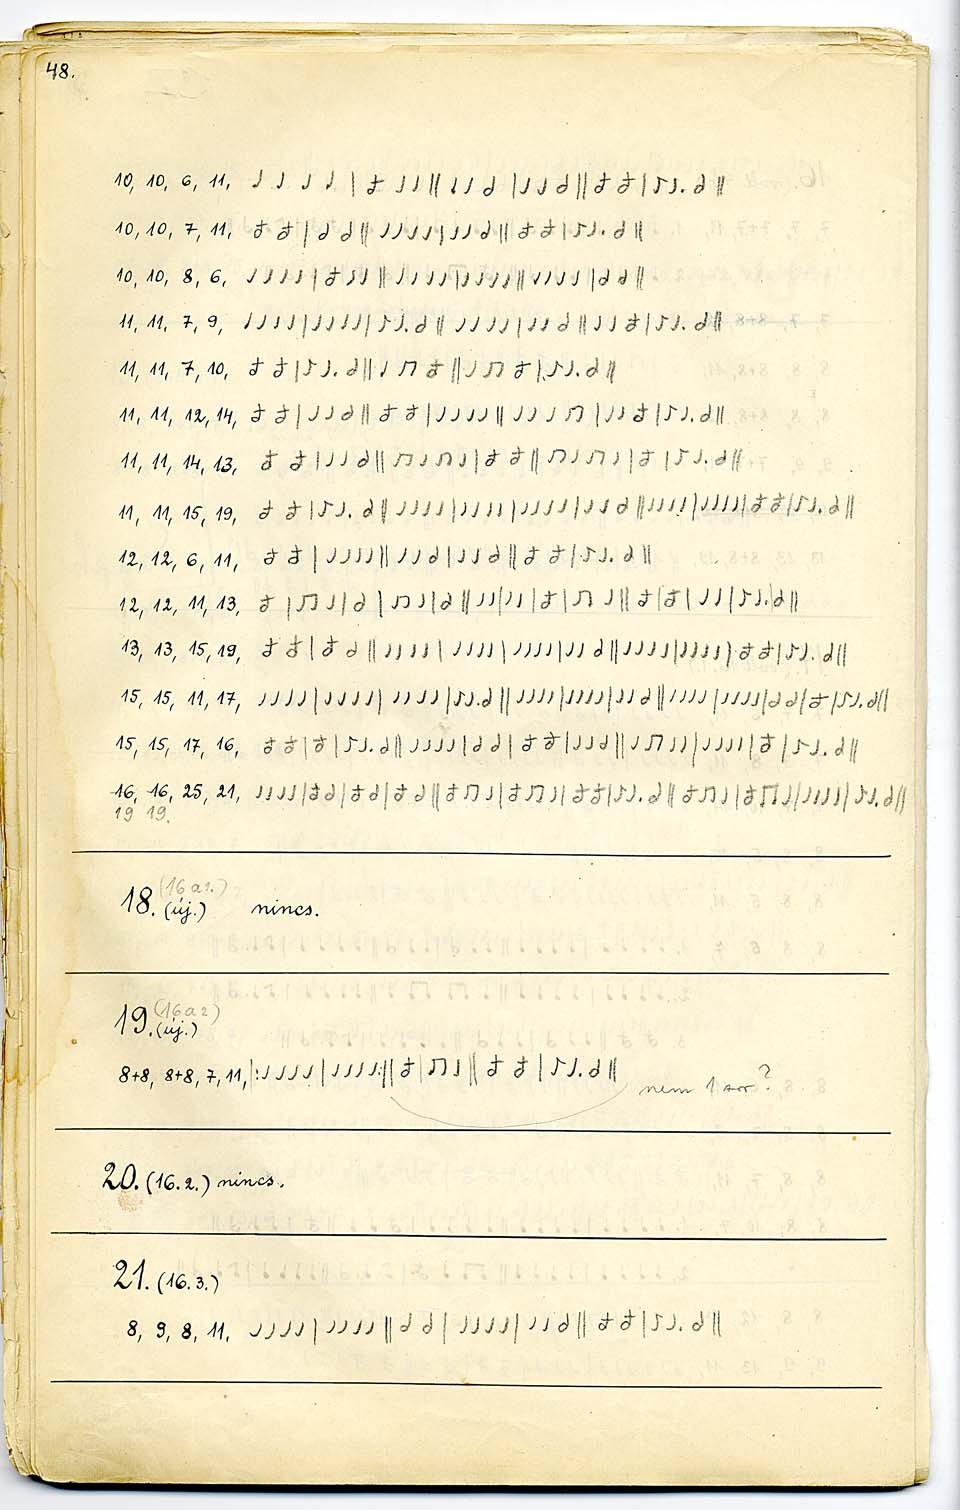 48.
10, 10, 6, 11,
10, 10, 7, 11,
10, 10, 8, 6,
11, 11, 7, 9,
11, 11, 7, 10,
11, 11, 12, 14,
11, 11, 14, 13,
11, 11, 15, 19,
12, 12, 6, 11,
12, 12, 11, 13,
13, 13, 15, 19,
15, 15, 11, 17,
15, 15, 17, 16,
16, 16, 25, 21,
19 19.
(16a1.)
18. (új.) nincs.
(16a2)
19. (új.)
8+8, 8+8, 7, 11,
nem 1 sor?
20. (16.2.) nincs.
21. (16.3.)
8, 9, 8, 11,